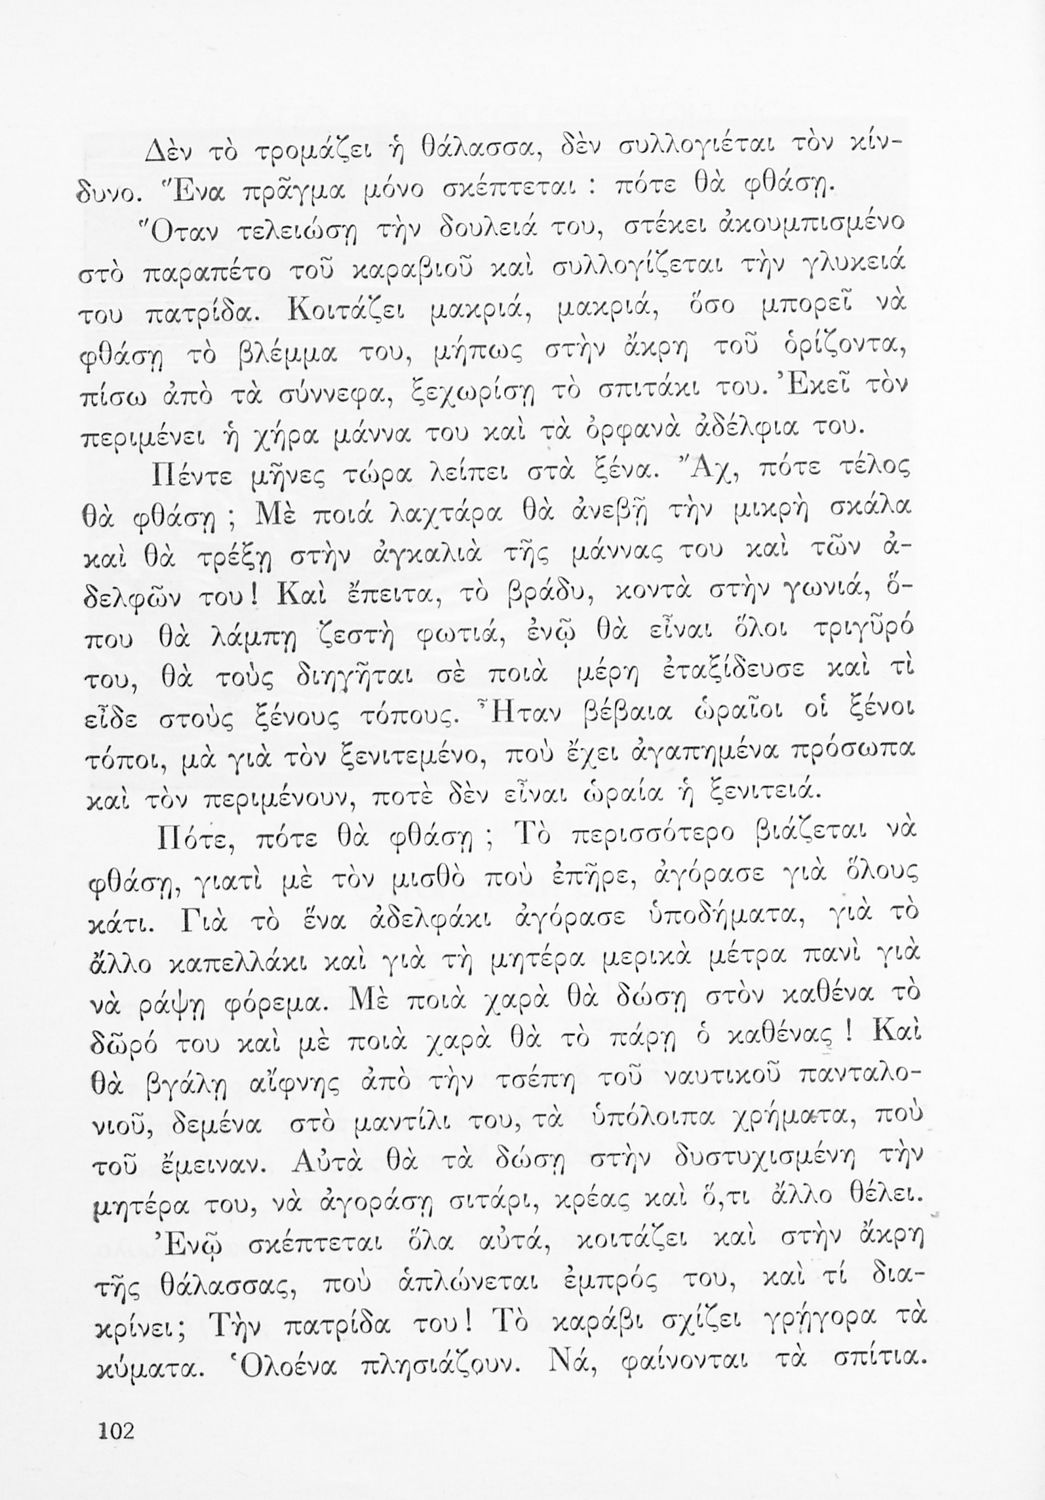 Δὲν τὸ τρομάζει ἡ θάλασσα, δὲν συλλογιέται τὸν κίν-
δυνο. Ἕνα πρᾶγμα μόνο σκέπτεται : πότε θὰ φθάσῃ.
Ὅταν τελειώσῃ τὴν δουλειά του, στέκει ἀκουμπισμένο
στὸ παραπέτο τοῦ καραβιοῦ καὶ συλλογίζεται τὴν γλυκειά
του πατρίδα. Κοιτάζει μακριά, μακριά, ὅσο μπορεῖ νὰ
φθάσῃ τὸ βλέμμα του, μήπως στὴν ἄκρη τοῦ ὁρίζοντα,
πίσω ἀπὸ τὰ σύννεφα, ξεχωρίσῃ τὸ σπιτάκι του. Ἐκεῖ τὸν
περιμένει ἡ χήρα μάννα του καὶ τὰ ὀρφανὰ ἀδέλφια του.
Πέντε μῆνες τώρα λείπει στὰ ξένα. Ἄχ, πότε τέλος
θὰ φθάσῃ ; Μὲ ποιά λαχτάρα θὰ ἀνεβῇ τὴν μικρὴ σκάλα
καὶ θὰ τρέξῃ στὴν ἀγκαλιὰ τῆς μάννας του καὶ τῶν ἀ-
δελφῶν του! Καὶ ἔπειτα, τὸ βράδυ, κοντὰ στὴν γωνιά, ὅ-
που θὰ λάμπῃ ζεστὴ φωτιά, ἐνῷ θὰ εἶναι ὅλοι τριγῦρό
του, θὰ τοὺς διηγῆται σὲ ποιὰ μέρη ἐταξίδευσε καὶ τὶ
εἶδε στοὺς ξένους τόπους. Ἦταν βέβαια ὡραῖοι οἱ ξένοι
τόποι, μὰ γιὰ τὸν ξενιτεμένο, ποὺ ἔχει ἀγαπημένα πρόσωπα
καὶ τὸν περιμένουν, ποτὲ δὲν εἶναι ὡραία ἡ ξενιτειά.
Πότε, πότε θὰ φθάσῃ ; Τὸ περισσότερο βιάζεται νὰ
φθάσῃ, γιατὶ μὲ τὸν μισθὸ ποὺ ἐπῆρε, ἀγόρασε γιὰ ὅλους
κάτι. Γιὰ τὸ ἕνα ἀδελφάκι ἀγόρασε ὑποδήματα, γιὰ τὸ
ἄλλο καπελλάκι καὶ γιὰ τὴ μητέρα μερικὰ μέτρα πανὶ γιὰ
νὰ ράψῃ φόρεμα. Μὲ ποιὰ χαρὰ θὰ δώσῃ στὸν καθένα τὸ
δῶρό του καὶ μὲ ποιὰ χαρὰ θὰ τὸ πάρῃ ὁ καθένας ! Καὶ
θὰ βγάλῃ αἴφνης ἀπὸ τὴν τσέπη τοῦ ναυτικοῦ πανταλο-
νιοῦ, δεμένα στὸ μαντίλι του, τὰ ὑπόλοιπα χρήματα, ποὺ
τοῦ ἔμειναν. Αὐτὰ θὰ τὰ δώσῃ στὴν δυστυχισμένη τὴν
μητέρα του, νὰ ἀγοράσῃ σιτάρι, κρέας καὶ ὅ,τι ἄλλο θέλει.
Ἐνῷ σκέπτεται ὅλα αὐτά, κοιτάζει καὶ στὴν ἄκρη
τῆς θάλασσας, ποὺ ἁπλώνεται ἐμπρός του, καὶ τί δια-
κρίνει; Τὴν πατρίδα του! Τὸ καράβι σχίζει γρήγορα τὰ
κύματα. Ὁλοένα πλησιάζουν. Νά, φαίνονται τὰ σπίτια.
102